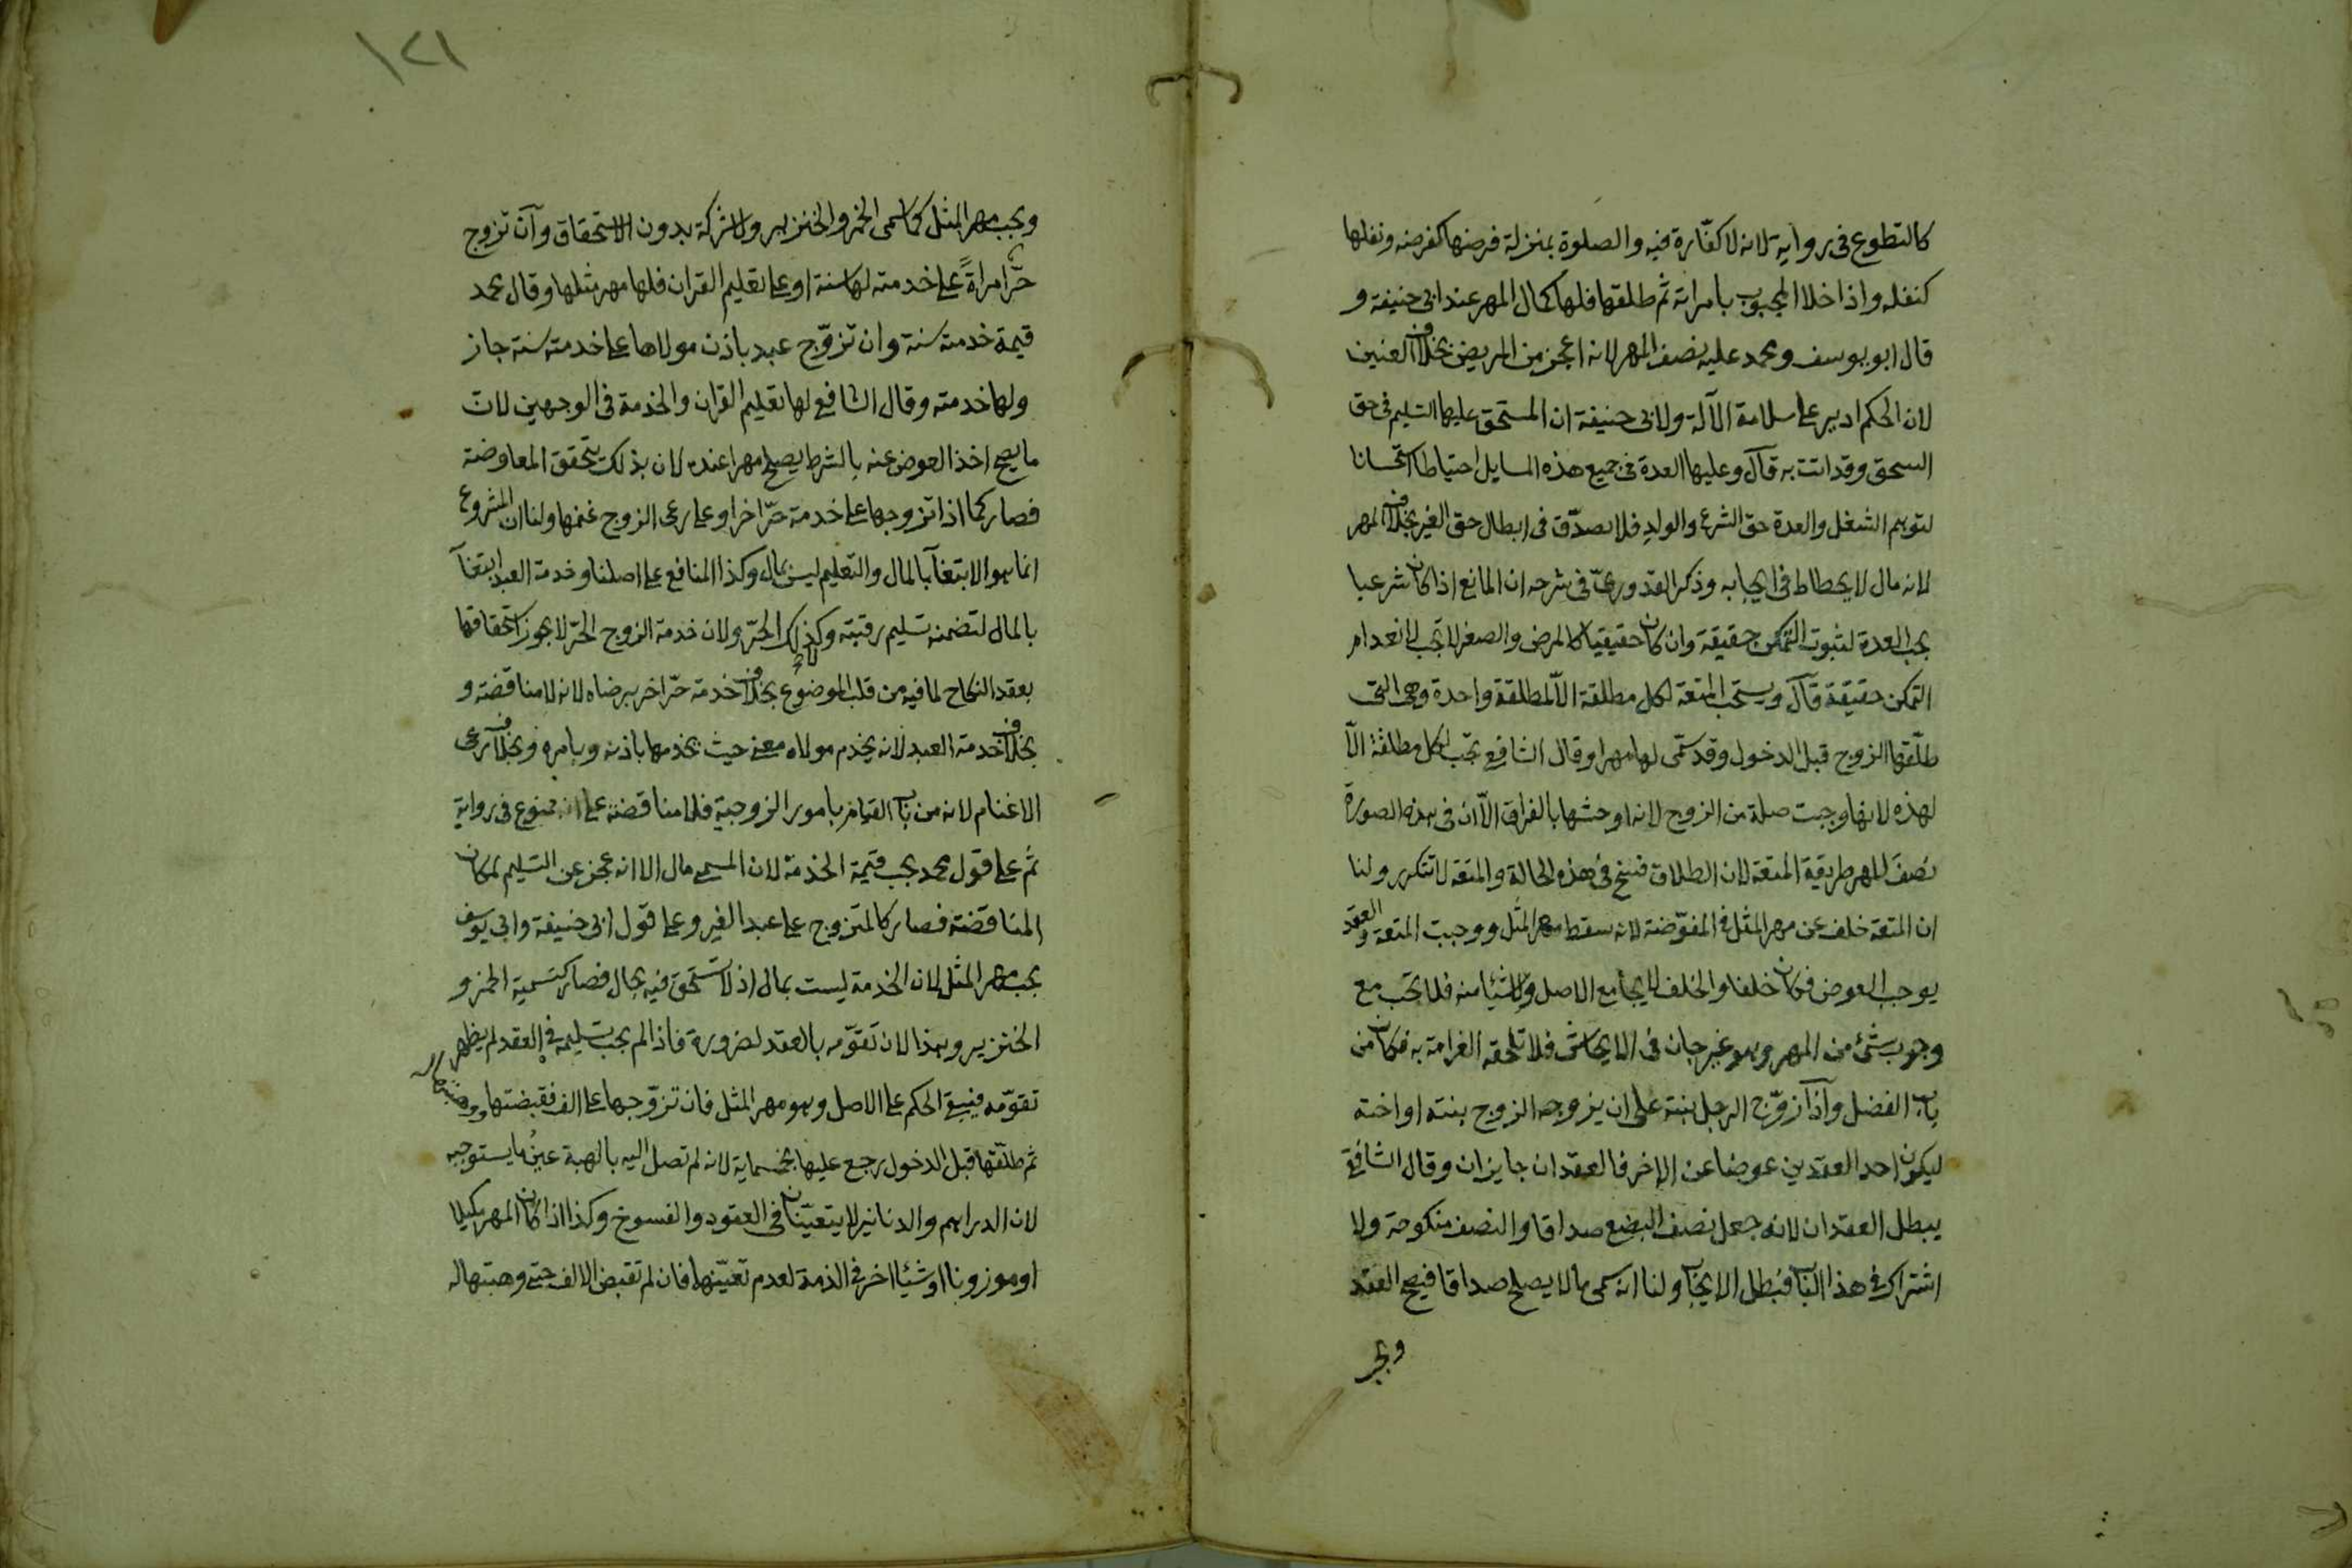 كالتطوع فى رواية لانه لا كفّارة فيه والصلوة بمنزلة فرضها كفرضه ونفلها
كنفله واذا خلا المجبوب بامراته ثم طلقها فلها كمال المهر عند ابى حنيفة و
قال ابو يوسف ومحمد عليه نصف المهر لانه اعجز من المريض بخلاف العنين
لان الحكم ادير على سلامة الآلة ولابى حنيفة ان المستحق عليها التسليم فى حق
السحق وقد اتت به قال وعليها العدة فى جميع هذه المسايل احتياطا استحسانا
لتوهم الشغل والعدة حق الشرع والولد فلا يصدّق فى ابطال حق الغير بخلاف المهر
لانه مال لا يحطاط فى ايجابه وذكر القدورىّ فى شرحه ان المانع اذا كان شرعيا
يجب العدة لثبوت التمكن حقيقة وان كان حقيقيا كالمرض والصغر لا تجب لانعدام
التمكن حقيقة قال ويستحب المتعة لكل مطلقة الّا لمطلقة واحدة وهى التى
طلّقها الزوج قبل الدخول وقد سمّى لها مهرا وقال الشافع تجب لكل مطلقة الّا
لهذه لانها وجبت صلة من الزوج لانه اوحشها بالفراق الّا ان فى هذه الصورة
نصف المهر طريقة المتعة لان الطلاق فسخ فى هذه الحالة والمتعة لا تتكرر ولنا
ان المتعة خلف عن مهر المثل فى المفوّضة لانه سقط مهر المثل ووجبت المتعة والعقد
يوجب العوض فكان خلفا والخلف لا يجامع الاصل ولا شيئا منه فلا تجب مع
وجوب شئ من المهر وهو غير جان فى الايحاش فلا تلحقه الغرامة به فكان من
باب الفضل واذا زوّج الرجل بنته على ان يزوجه الزوج بنته او اخته
ليكون احد العقدين عوضا عن الاخر فالعقدان جايزان وقال الشافع
يبطل العقدان لانه جعل نصف البضع صداقا والنصف منكوحة ولا
اشتراك فى هذا الباب فبطل الايجاب ولنا انه سمى ما لا يصلح صداقا فيصح العقد
ويجب
١٢١
ويجب مهر المثل كما سمى الخمر والخنزير ولا شركة بدون الاستحقاق وان تزوج
حرّ امراةً على خدمته لها سنة او على تعليم القران فلها مهر مثلها وقال محمد
قيمة خدمته سنة وان تزوّج عبد باذن مولاها على خدمته سنة جاز
ولها خدمته وقال الشافع لها تعليم القران والخدمة فى الوجهين لان
ما يصح اخذ العوض عنه بالشرط يصلح مهرا عنده لان بذلك يتحقق المعاوضة
فصار كما اذا تزوجها على خدمة حرّ اخر او على رعى الزوج غنمها ولنا ان المشروع
انما هو الابتغآ بالمال والتعليم ليس بمال وكذا المنافع على اصلنا وخدمة العبد ابتغآ
بالمال لتضمنه تسليم رقبته وكذلك الحرّ ولان خدمة الزوج الحرّ لا يجوز استحقاقها
بعقد النكاح لما فيه من قلب الموضوع بخلاف خدمة حرّ اخر برضاه لانه لا مناقضة و
بخلاف خدمة العبد لانه يخدم مولاه معنى حيث يخدمها باذنه وبامره وبخلاف رعى
الاغنام لانه من باب القيام بامور الزوجية فلا مناقضة على انه ممنوع فى رواية
ثم على قول محمد يجب قيمة الخدمة لان المسمى مال الا انه عجز عن التسليم لمكان
المناقضة فصار كالتزوج على عبد الغير وعلى قول ابى حنيفة وابى يوسف
يجب مهر المثل لان الخدمة ليست بمال اذ لا تستحق فيه بحال فصار كتسمية الخمر و
الخنزير وهذا لان تقوّمه بالعقد لضرورة فاذا لم يجب تسليمه فى العقد لم يظهر
تقوّمه فيبقى الحكم على الاصل وهو مهر المثل فان تزوّجها على الف فقبضتها ووهبتها له
ثم طلّقها قبل الدخول رجع عليها بخمسماية لانه لم تصل اليه بالهبة عين ما يستوجبه
لان الدراهم والدنانير لا يتعيّنان فى العقود والفسوخ وكذا اذا كان المهر مكيلا
او موزونا او شيئا اخر فى الذمة لعدم تعيّنها فان لم تقبض الالف حتى وهبتها له